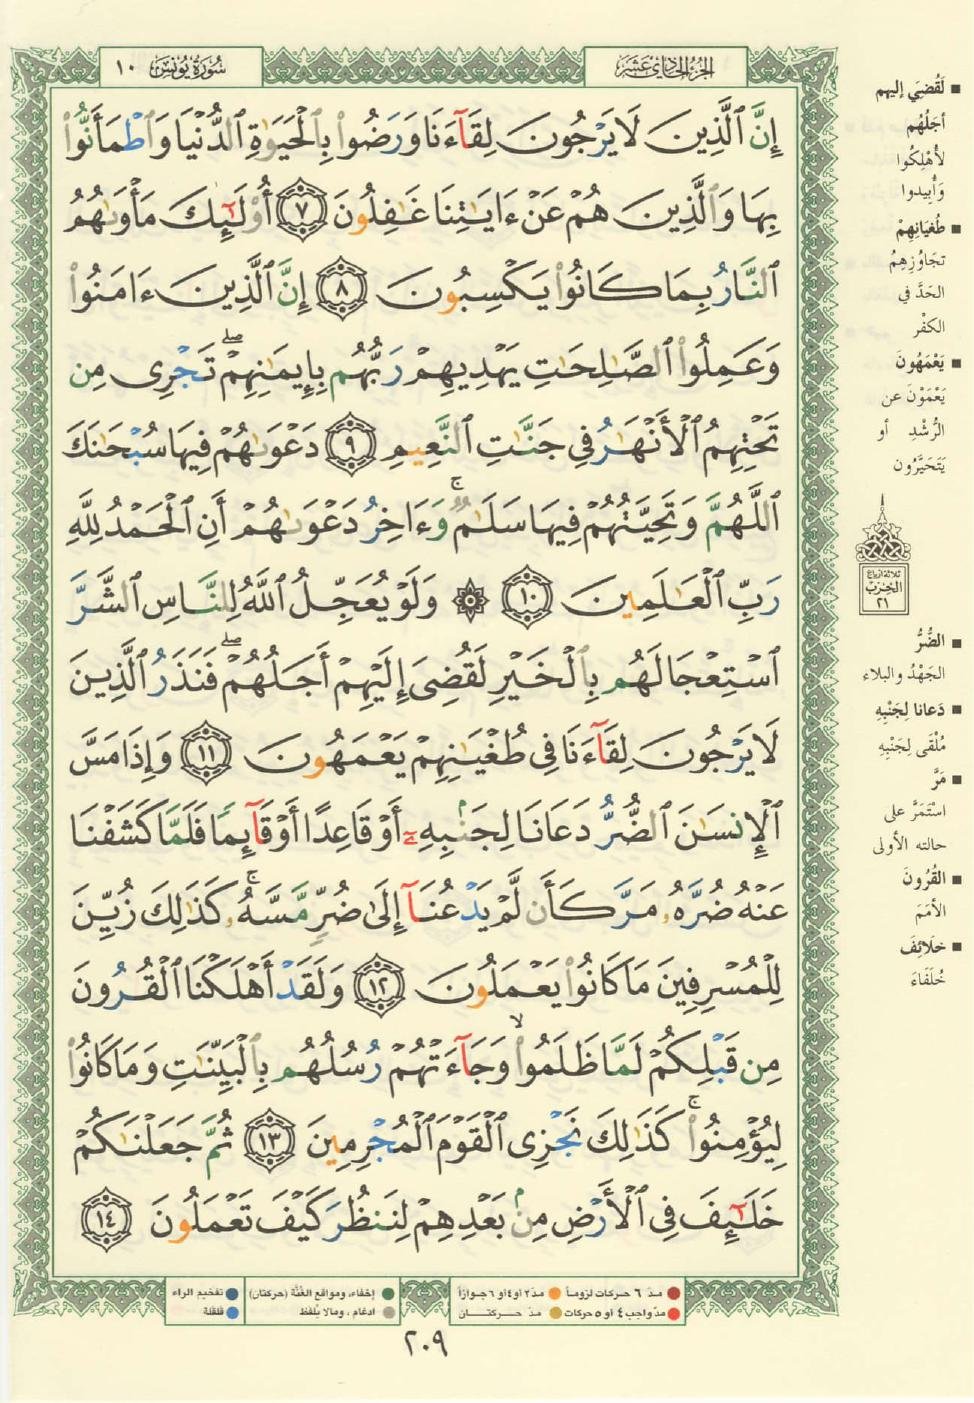 الجزء الحادي عشر
سورة يونس ١٠
إِنَّ ٱلَّذِينَ لَا يَرْجُونَ لِقَآءَنَا وَرَضُوا۟ بِٱلْحَيَوٰةِ ٱلدُّنْيَا وَٱطْمَأَنُّوا۟
بِهَا وَٱلَّذِينَ هُمْ عَنْ ءَايَـٰتِنَا غَـٰفِلُونَ ٧ أُو۟لَـٰٓئِكَ مَأْوَىٰهُمُ
ٱلنَّارُ بِمَا كَانُوا۟ يَكْسِبُونَ ٨ إِنَّ ٱلَّذِينَ ءَامَنُوا۟
وَعَمِلُوا۟ ٱلصَّـٰلِحَـٰتِ يَهْدِيهِمْ رَبُّهُم بِإِيمَـٰنِهِمْ ۖ تَجْرِى مِن
تَحْتِهِمُ ٱلْأَنْهَـٰرُ فِى جَنَّـٰتِ ٱلنَّعِيمِ ٩ دَعْوَىٰهُمْ فِيهَا سُبْحَـٰنَكَ
ٱللَّهُمَّ وَتَحِيَّتُهُمْ فِيهَا سَلَـٰمٌ ۚ وَءَاخِرُ دَعْوَىٰهُمْ أَنِ ٱلْحَمْدُ لِلَّهِ
رَبِّ ٱلْعَـٰلَمِينَ ١٠ ۞ وَلَوْ يُعَجِّلُ ٱللَّهُ لِلنَّاسِ ٱلشَّرَّ
ٱسْتِعْجَالَهُم بِٱلْخَيْرِ لَقُضِىَ إِلَيْهِمْ أَجَلُهُمْ ۖ فَنَذَرُ ٱلَّذِينَ
لَا يَرْجُونَ لِقَآءَنَا فِى طُغْيَـٰنِهِمْ يَعْمَهُونَ ١١ وَإِذَا مَسَّ
ٱلْإِنسَـٰنَ ٱلضُّرُّ دَعَانَا لِجَنۢبِهِۦٓ أَوْ قَاعِدًا أَوْ قَآئِمًا فَلَمَّا كَشَفْنَا
عَنْهُ ضُرَّهُۥ مَرَّ كَأَن لَّمْ يَدْعُنَآ إِلَىٰ ضُرٍّ مَّسَّهُۥ ۚ كَذَٰلِكَ زُيِّنَ
لِلْمُسْرِفِينَ مَا كَانُوا۟ يَعْمَلُونَ ١٢ وَلَقَدْ أَهْلَكْنَا ٱلْقُرُونَ
مِن قَبْلِكُمْ لَمَّا ظَلَمُوا۟ ۙ وَجَآءَتْهُمْ رُسُلُهُم بِٱلْبَيِّنَـٰتِ وَمَا كَانُوا۟
لِيُؤْمِنُوا۟ ۚ كَذَٰلِكَ نَجْزِى ٱلْقَوْمَ ٱلْمُجْرِمِينَ ١٣ ثُمَّ جَعَلْنَـٰكُمْ
خَلَـٰٓئِفَ فِى ٱلْأَرْضِ مِنۢ بَعْدِهِمْ لِنَنظُرَ كَيْفَ تَعْمَلُونَ ١٤
■ لَقُضِيَ إليهم
أجَلُهُم
لأُهْلِكُوا
وَأُبِيدوا
■ طُغيَانِهِمْ
تجَاوُزِهِمُ
الحَدَّ في
الكفْر
■ يَعْمَهُونَ
يَعْمَوْنَ عن
الرُّشْدِ أو
يَتَحَيَّرُون
ثلاثة أرباع
الحِزب
٢١
■ الضُّرُّ
الجَهْدُ والبلاء
■ دَعانا لِجَنْبِهِ
مُلْقًى لِجَنْبِهِ
■ مَرَّ
اسْتَمَرَّ على
حالته الأولى
■ القُرُونَ
الأمَمَ
■ خلَائِفَ
خُلَفَاءَ
مدّ ٦ حركات لزوماً
مدّ ٢ أو ٤ أو ٦ جوازاً
إخفاء، ومواقع الغُنَّة (حركتان)
تفخيم الراء
مدّ واجب ٤ أو ٥ حركات
مدّ حركتان
ادغام، ومالا يُلفَظ
قلقلة
٢٠٩